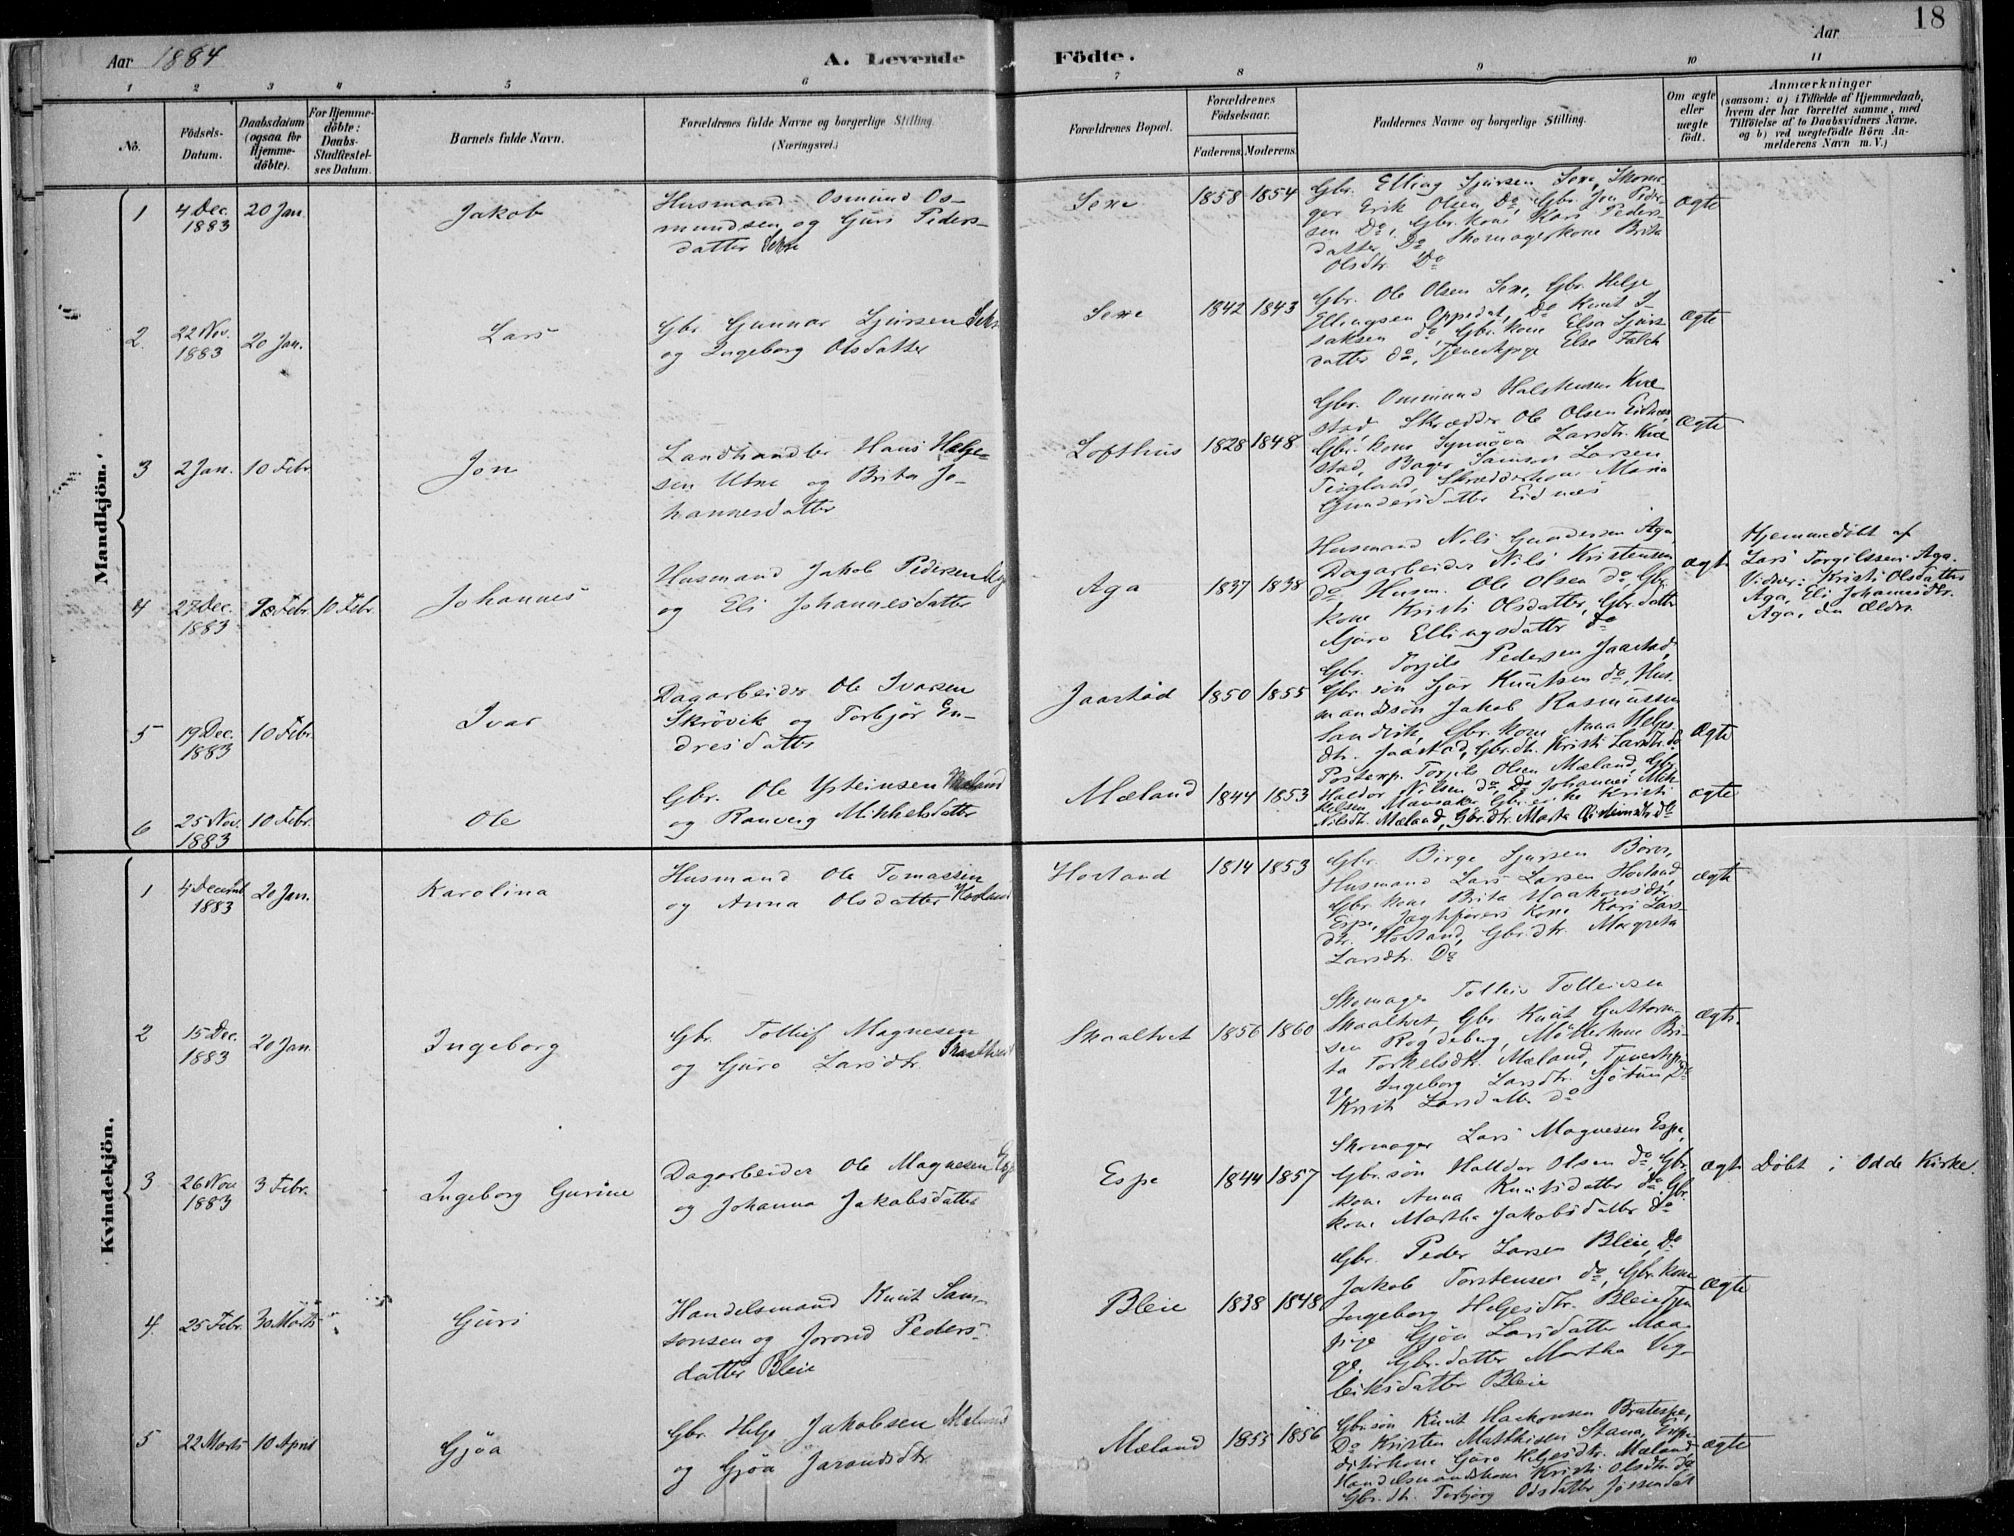 18
Aar 1884
A. Levende Födte.
Aar
1 2 3 4 5 6 7 8 9 10 11
No.
Födsels-Datum.
Daabsdatum (ogsaa for Hjemme-döbte).
For Hjemme-döbte: Daabs-Stadfæstel-ses Datum.
Barnets fulde Navn.
Forældrenes fulde Navne og borgerlige Stilling.
(Næringsvei.)
Forældrenes Bopæl.
Forældrenes Födselsaar.
Faderens. Moderens.
Faddernes Navne og borgerlige Stilling.
Om ægte eller uægte födt.
Anmærkninger
(saasom: a) i Tilfælde af Hjemmedaab,
hvem der har forrettet samme, med
Tilföielse af to Daabsvidners Navne.
og b) ved uægtefödte Börn An-
melderens Navn m. V.)
Mandkjön.
1
4 Dec. 1883
20 Jan.
Jakob
Husmand Osmund Os-
mundsen og Guri Peders-
datter Sexe
Sexe
1858 1854
Gbr. Elling Sjursen Sexe, Skoma-
ger Erik Olsen Do, Gbr. Jon Peder-
sen Do, Gbr.kone Kari Peders-
datter Do, Skomagerkone Brita
Olsdtr. Do
Ægte
2.
22 Nov. 1883
20 Jan.
Lars
Gbr Gunnar Sjursen
og Ingeborg Olsdatter
Sexe
1842 1843
Gbr. Ole Olsen Sexe, Gbr. Helje
Ellingsen Oppedal, Do Knut I-
saksen do, Gbr.kone Elsa Sjurs
datter do, Tjenestpige Else Falch
Ægte
3
2 Jan.
10 Febr
Jon
Landhandler Hans Helje-
sen Utne og Brita Jo-
hannesdatter
Lofthus
1828 1848
Gbr. Ommund Halstensen Kvæ
stad, Skrædder Ole Olsen Eidnæs
Gbr.kone Synnöva Larsdtr. Kvæ
stad, Bager Samson Larsen
Skrædderkone Maria
Gundersdatter Eidnes
Ægte
4
27 Dec. 1883
Febr.
10 Febr.
Johannes
Husmand Jakob Pedersen Aga
og Eli Johannesdatter
Aga
1837 1838
Husmand Nils Gundersen Aga
Dagarbeider Nils Kristensen
do, Husm. Ole Olsen do, Gbr.
kone Kristi Olsdatter, Gbr.datter
Guro Ellingsdatter do
ægte
Hjemmedöbt af
Lars Torgilssen Aga.
Vidner: Kristi Olsdatter
Aga, Eli Johannesdtr.
Aga, den Ældre.
5
19 Dec. 1883
10 Febr.
Ivar
Dagarbeider Ole Ivarsen
Skrövik og Torbjör En-
dresdatter
Jaastad
1850 1855
Gbr. Torjils Pedersen Jaastad,
Gbr.sön Sjur Knutsen do, Hus
mandssön Jakob Rasmussen
Sandvik, Gbr.kone Anna Heljes
dtr. Jaastad, Gbr.dtr. Kristi Larsdtr. do
Ægte
6
25 Nov. 1883
10 Febr.
Ole
Gbr. Ole Ysteinsen Mæland
og Ranveig Mikkelsdatter
Mæland
1844 1853
Postexp. Torjils Olsen Mæland, Gbr.
Haldor Nilsen do, Do Johannes Mik-
kelsen Mauraker, Gbr.enke Kristi
Nilsdtr. Mæland, Gbr.dtr. Marta do
ægte
Kvindekjön.
1
4 Decemb 1883
20 Jan.
Karolina
Husmand Ole Tomassen
og Anna Olsdatter Hovland
Hovland
1814 1853
Gbr. Birge Sjursen Börve,
Husmand Lars Larsen Hovland,
Gbr.kone Brita Haakonsdtr.
Espe, Jægtförers Kone Kari Lars-
dtr. Hovland, Gbr.dtr. Margreta
Larsdtr. Do
ægte
2
15 Dec. 1883
20 Jan.
Ingeborg
Gbr. Tolleif Magnesen
og Guro Larsdtr. Skaaltveit
Skaaltvet
1856 1860
Skomager Tolleiv Tolleivsen
Skaaltvet, Gbr. Knut Guttorm
sen Rogdeberg, Möllerkone Bri-
ta Torkelsdtr. Mæland, Tjenestepi-
ge Ingeborg Larsdtr. Jötun, Do
Larsdatter do
ægte.
3
26 Nov 1883
3 Febr.
Ingeborg Gurine
Dagarbeider Ole Magnesen Espe
og Johanna Jakobsdatter
Espe
1844 1857
Skomager Lars Magnesen Espe,
Gbr.sön Halldor Olsen do, Gbr.
kone Anna Knutsdatter do, Gbr.
kone Martha Jakobsdatter do
ægte
Döbt i Odde Kirke.
4.
25 Febr.
30 Marts
Guri
Handelsmand Knut Sam-
sonsen og Jorond Peders-
datter Bleie
Bleie
1838 1848
Gbr. Peder Larsen Bleie, Do
Jakob Torstensen do, Gbr.kone
Ingeborg Heljesdtr. Bleie, Tjn
pige Gjöa Larsdatter Maa-
ge, Gbr.datter Martha Vig-
leiksdatter Bleie
Ægte
5
22 Marts
10 April
Gjöa
Gbr. Helje Jakobsen Mæland
og Gjöa Jarondsdtr
Mæland
1855 1856
Gbr.sön Knut Haakonsen Bratespe,
Do Kristen Matthisen Stana, Expe-
ditörkone Guro Heljesdtr. Mæland,
Handelsmandskone Kristi Olsdtr. do
Gbr.dtr. Torbjörg Odsdatter Jössendal
ægte